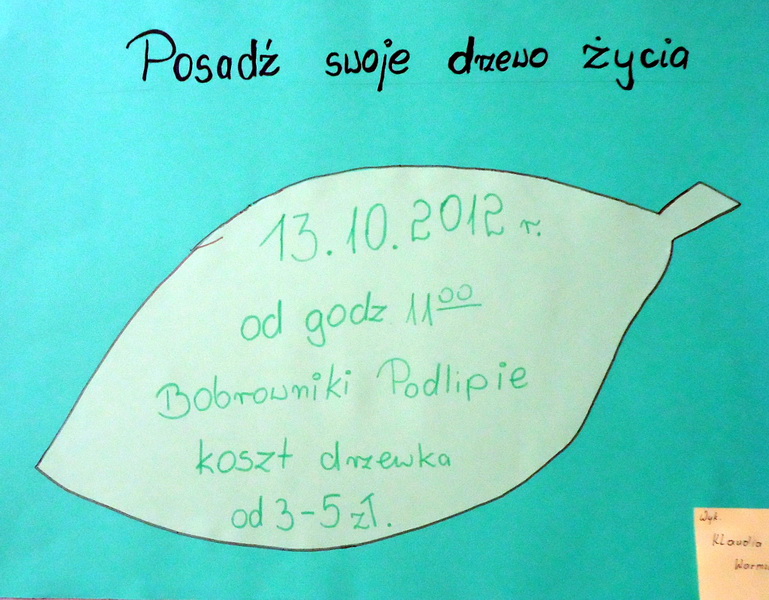 Posadź swoje drzewo życia
13.10.2012 r.
od godz 1100
Bobrowniki Podlipie
koszt drzewka
od 3-5 zł.
Wyk.
Klaudia